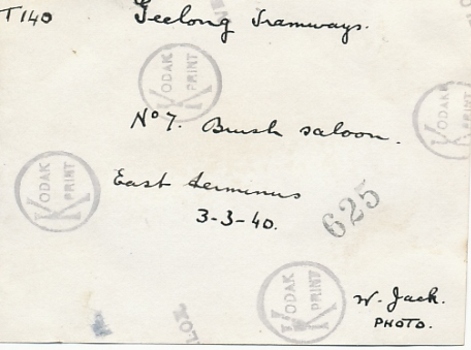 T140 Geelong Tramways.
KODAK PRINT
No 7. Brush saloon.
KODAK PRINT
KODAK PRINT
East terminus
3-3-40.
625
KODAK PRINT
W. Jack.
PHOTO.